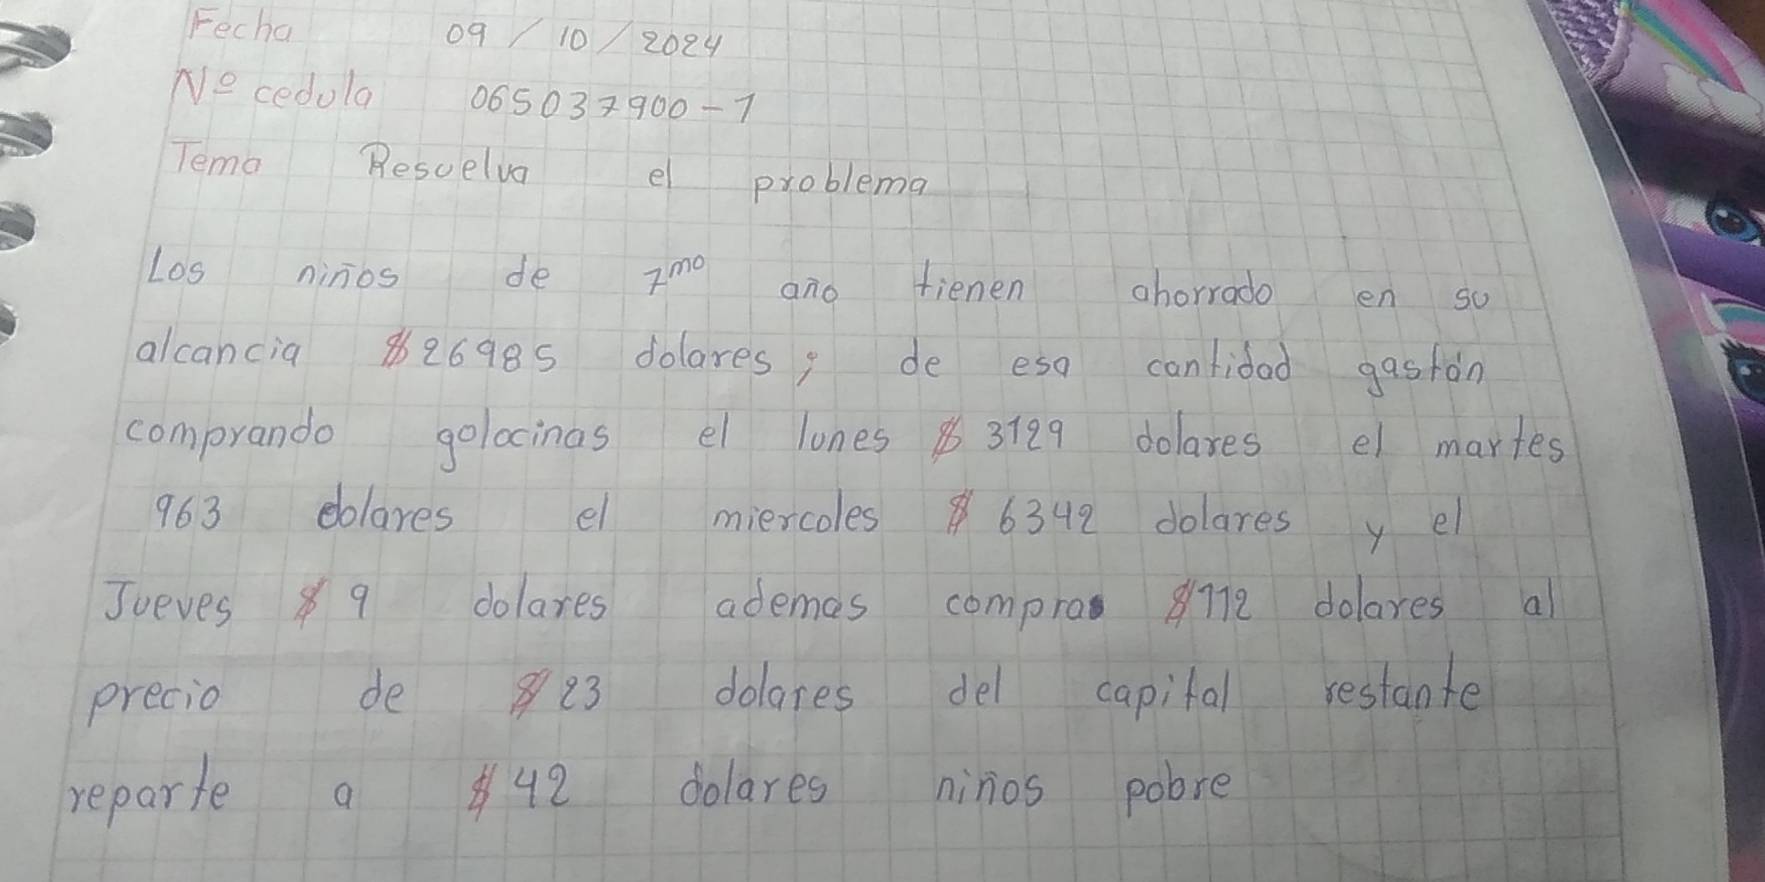 Fecha 09 / 10 / 2024
Nº cedula 065037900-1
Tema Resuelva el problema
Los niños de 7mo año tienen ahorrado en su
alcancia $26985 dolares; de esa cantidad gastán
comprando golocinas el lunes $ 3129 dolares el martes
963 dolares el miercoles $ 6342 dolares y el
Jueves $ 9 dolares ademas compras $112 dolares al
precio de $ 23 dolares del capital restante
reparte a $ 42 dolares niños pobre